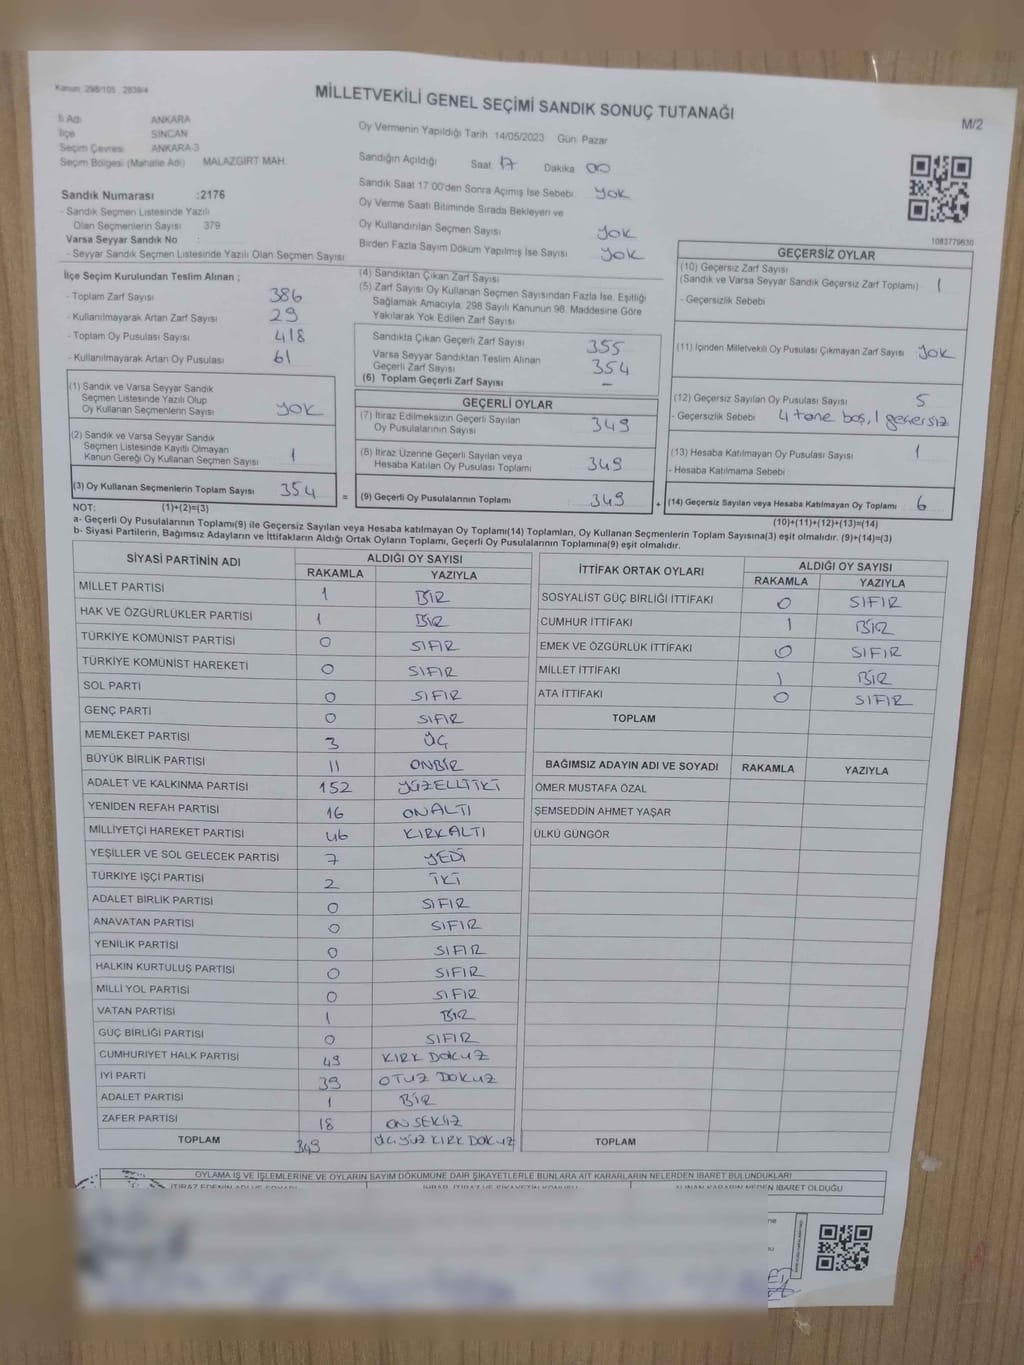 Kanun: 298/105 , 2839/4
MİLLETVEKİLİ GENEL SEÇİMİ SANDIK SONUÇ TUTANAĞI
M/2
İl Adı ANKARA
İlçe SİNCAN
Seçim Çevresi ANKARA-3
Seçim Bölgesi (Mahalle Adı) MALAZGİRT MAH.
Sandık Numarası :2176
- Sandık Seçmen Listesinde Yazılı
Olan Seçmenlerin Sayısı 379
Varsa Seyyar Sandık No :
- Seyyar Sandık Seçmen Listesinde Yazılı Olan Seçmen Sayısı
Oy Vermenin Yapıldığı Tarih 14/05/2023 Gün Pazar
Sandığın Açıldığı Saat 17 Dakika 00
Sandık Saat 17.00'den Sonra Açımış İse Sebebi yok
Oy Verme Saati Bitiminde Sırada Bekleyen ve
Oy Kullandırılan Seçmen Sayısı yok
Birden Fazla Sayım Döküm Yapılmış İse Sayısı yok
1083779630
İlçe Seçim Kurulundan Teslim Alınan ;
- Toplam Zarf Sayısı 386
- Kullanılmayarak Artan Zarf Sayısı 29
- Toplam Oy Pusulası Sayısı 418
- Kullanılmayarak Artan Oy Pusulası 61
(1) Sandık ve Varsa Seyyar Sandık
Seçmen Listesinde Yazılı Olup
Oy Kullanan Seçmenlerin Sayısı yok
(2) Sandık ve Varsa Seyyar Sandık
Seçmen Listesinde Kayıtlı Olmayan
Kanun Gereği Oy Kullanan Seçmen Sayısı 1
(3) Oy Kullanan Seçmenlerin Toplam Sayısı 354
NOT: (1)+(2)=(3)
(4) Sandıktan Çıkan Zarf Sayısı
(5) Zarf Sayısı Oy Kullanan Seçmen Sayısından Fazla İse, Eşitliği
Sağlamak Amacıyla, 298 Sayılı Kanunun 98. Maddesine Göre
Yakılarak Yok Edilen Zarf Sayısı
Sandıkta Çıkan Geçerli Zarf Sayısı 355
Varsa Seyyar Sandıktan Teslim Alınan
Geçerli Zarf Sayısı 354
(6) Toplam Geçerli Zarf Sayısı –
GEÇERLİ OYLAR
(7) İtiraz Edilmeksizin Geçerli Sayılan
Oy Pusulalarının Sayısı 349
(8) İtiraz Üzerine Geçerli Sayılan veya
Hesaba Katılan Oy Pusulası Toplamı 349
= (9) Geçerli Oy Pusulalarının Toplamı 349 +
GEÇERSİZ OYLAR
(10) Geçersiz Zarf Sayısı
(Sandık ve Varsa Seyyar Sandık Geçersiz Zarf Toplamı) 1
- Geçersizlik Sebebi
(11) İçinden Milletvekili Oy Pusulası Çıkmayan Zarf Sayısı yok
(12) Geçersiz Sayılan Oy Pusulası Sayısı 5
- Geçersizlik Sebebi 4 tane boş, 1 geçersiz
(13) Hesaba Katılmayan Oy Pusulası Sayısı 1
- Hesaba Katılmama Sebebi
(14) Geçersiz Sayılan veya Hesaba Katılmayan Oy Toplamı 6
(10)+(11)+(12)+(13)=(14)
a- Geçerli Oy Pusulalarının Toplamı(9) ile Geçersiz Sayılan veya Hesaba Katılmayan Oy Toplamı(14) Toplamları, Oy Kullanan Seçmenlerin Toplam Sayısına(3) eşit olmalıdır. (9)+(14)=(3)
b- Siyasi Partilerin, Bağımsız Adayların ve İttifakların Aldığı Ortak Oyların Toplamı, Geçerli Oy Pusulalarının Toplamına(9) eşit olmalıdır.
SİYASİ PARTİNİN ADI ALDIĞI OY SAYISI
RAKAMLA YAZIYLA
MİLLET PARTİSİ 1 BİR
HAK VE ÖZGÜRLÜKLER PARTİSİ 1 BİR
TÜRKİYE KOMÜNİST PARTİSİ 0 SIFIR
TÜRKİYE KOMÜNİST HAREKETİ 0 SIFIR
SOL PARTİ 0 SIFIR
GENÇ PARTİ 0 SIFIR
MEMLEKET PARTİSİ 3 ÜÇ
BÜYÜK BİRLİK PARTİSİ 11 ONBİR
ADALET VE KALKINMA PARTİSİ 152 YÜZELLİİKİ
YENİDEN REFAH PARTİSİ 16 ONALTI
MİLLİYETÇİ HAREKET PARTİSİ 46 KIRKALTI
YEŞİLLER VE SOL GELECEK PARTİSİ 7 YEDİ
TÜRKİYE İŞÇİ PARTİSİ 2 İKİ
ADALET BİRLİK PARTİSİ 0 SIFIR
ANAVATAN PARTİSİ 0 SIFIR
YENİLİK PARTİSİ 0 SIFIR
HALKIN KURTULUŞ PARTİSİ 0 SIFIR
MİLLİ YOL PARTİSİ 0 SIFIR
VATAN PARTİSİ 1 BİR
GÜÇ BİRLİĞİ PARTİSİ 0 SIFIR
CUMHURİYET HALK PARTİSİ 49 KIRK DOKUZ
İYİ PARTİ 39 OTUZ DOKUZ
ADALET PARTİSİ 1 BİR
ZAFER PARTİSİ 18 ON SEKİZ
TOPLAM 349 ÜÇ YÜZ KIRK DOKUZ
İTTİFAK ORTAK OYLARI ALDIĞI OY SAYISI
RAKAMLA YAZIYLA
SOSYALİST GÜÇ BİRLİĞİ İTTİFAKI 0 SIFIR
CUMHUR İTTİFAKI 1 BİR
EMEK VE ÖZGÜRLÜK İTTİFAKI 0 SIFIR
MİLLET İTTİFAKI 1 BİR
ATA İTTİFAKI 0 SIFIR
TOPLAM
BAĞIMSIZ ADAYIN ADI VE SOYADI RAKAMLA YAZIYLA
ÖMER MUSTAFA ÖZAL
ŞEMSEDDİN AHMET YAŞAR
ÜLKÜ GÜNGÖR
TOPLAM
OYLAMA İŞ VE İŞLEMLERİNE VE OYLARIN SAYIM DÖKÜMÜNE DAİR ŞİKAYETLERLE BUNLARA AİT KARARLARIN NELERDEN İBARET BULUNDUKLARI
ALINAN KARARIN NEDEN İBARET OLDUĞU